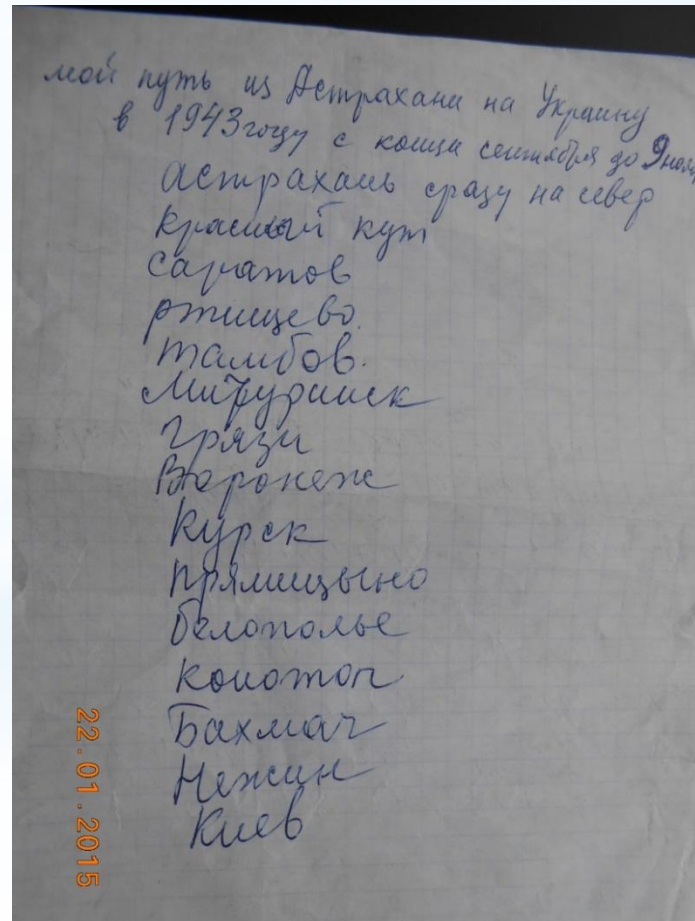 мой путь из Астрахани на Украину
в 1943 году с конца сентября до 9 нояб
астрахань сразу на север
красный кут
саратов
ртищево.
тамбов.
Мичуринск
Грязи
Воронеж
Курск
прямицыно
белополье
конотоп
Бахмач
Нежин
Киев
22.01.2015